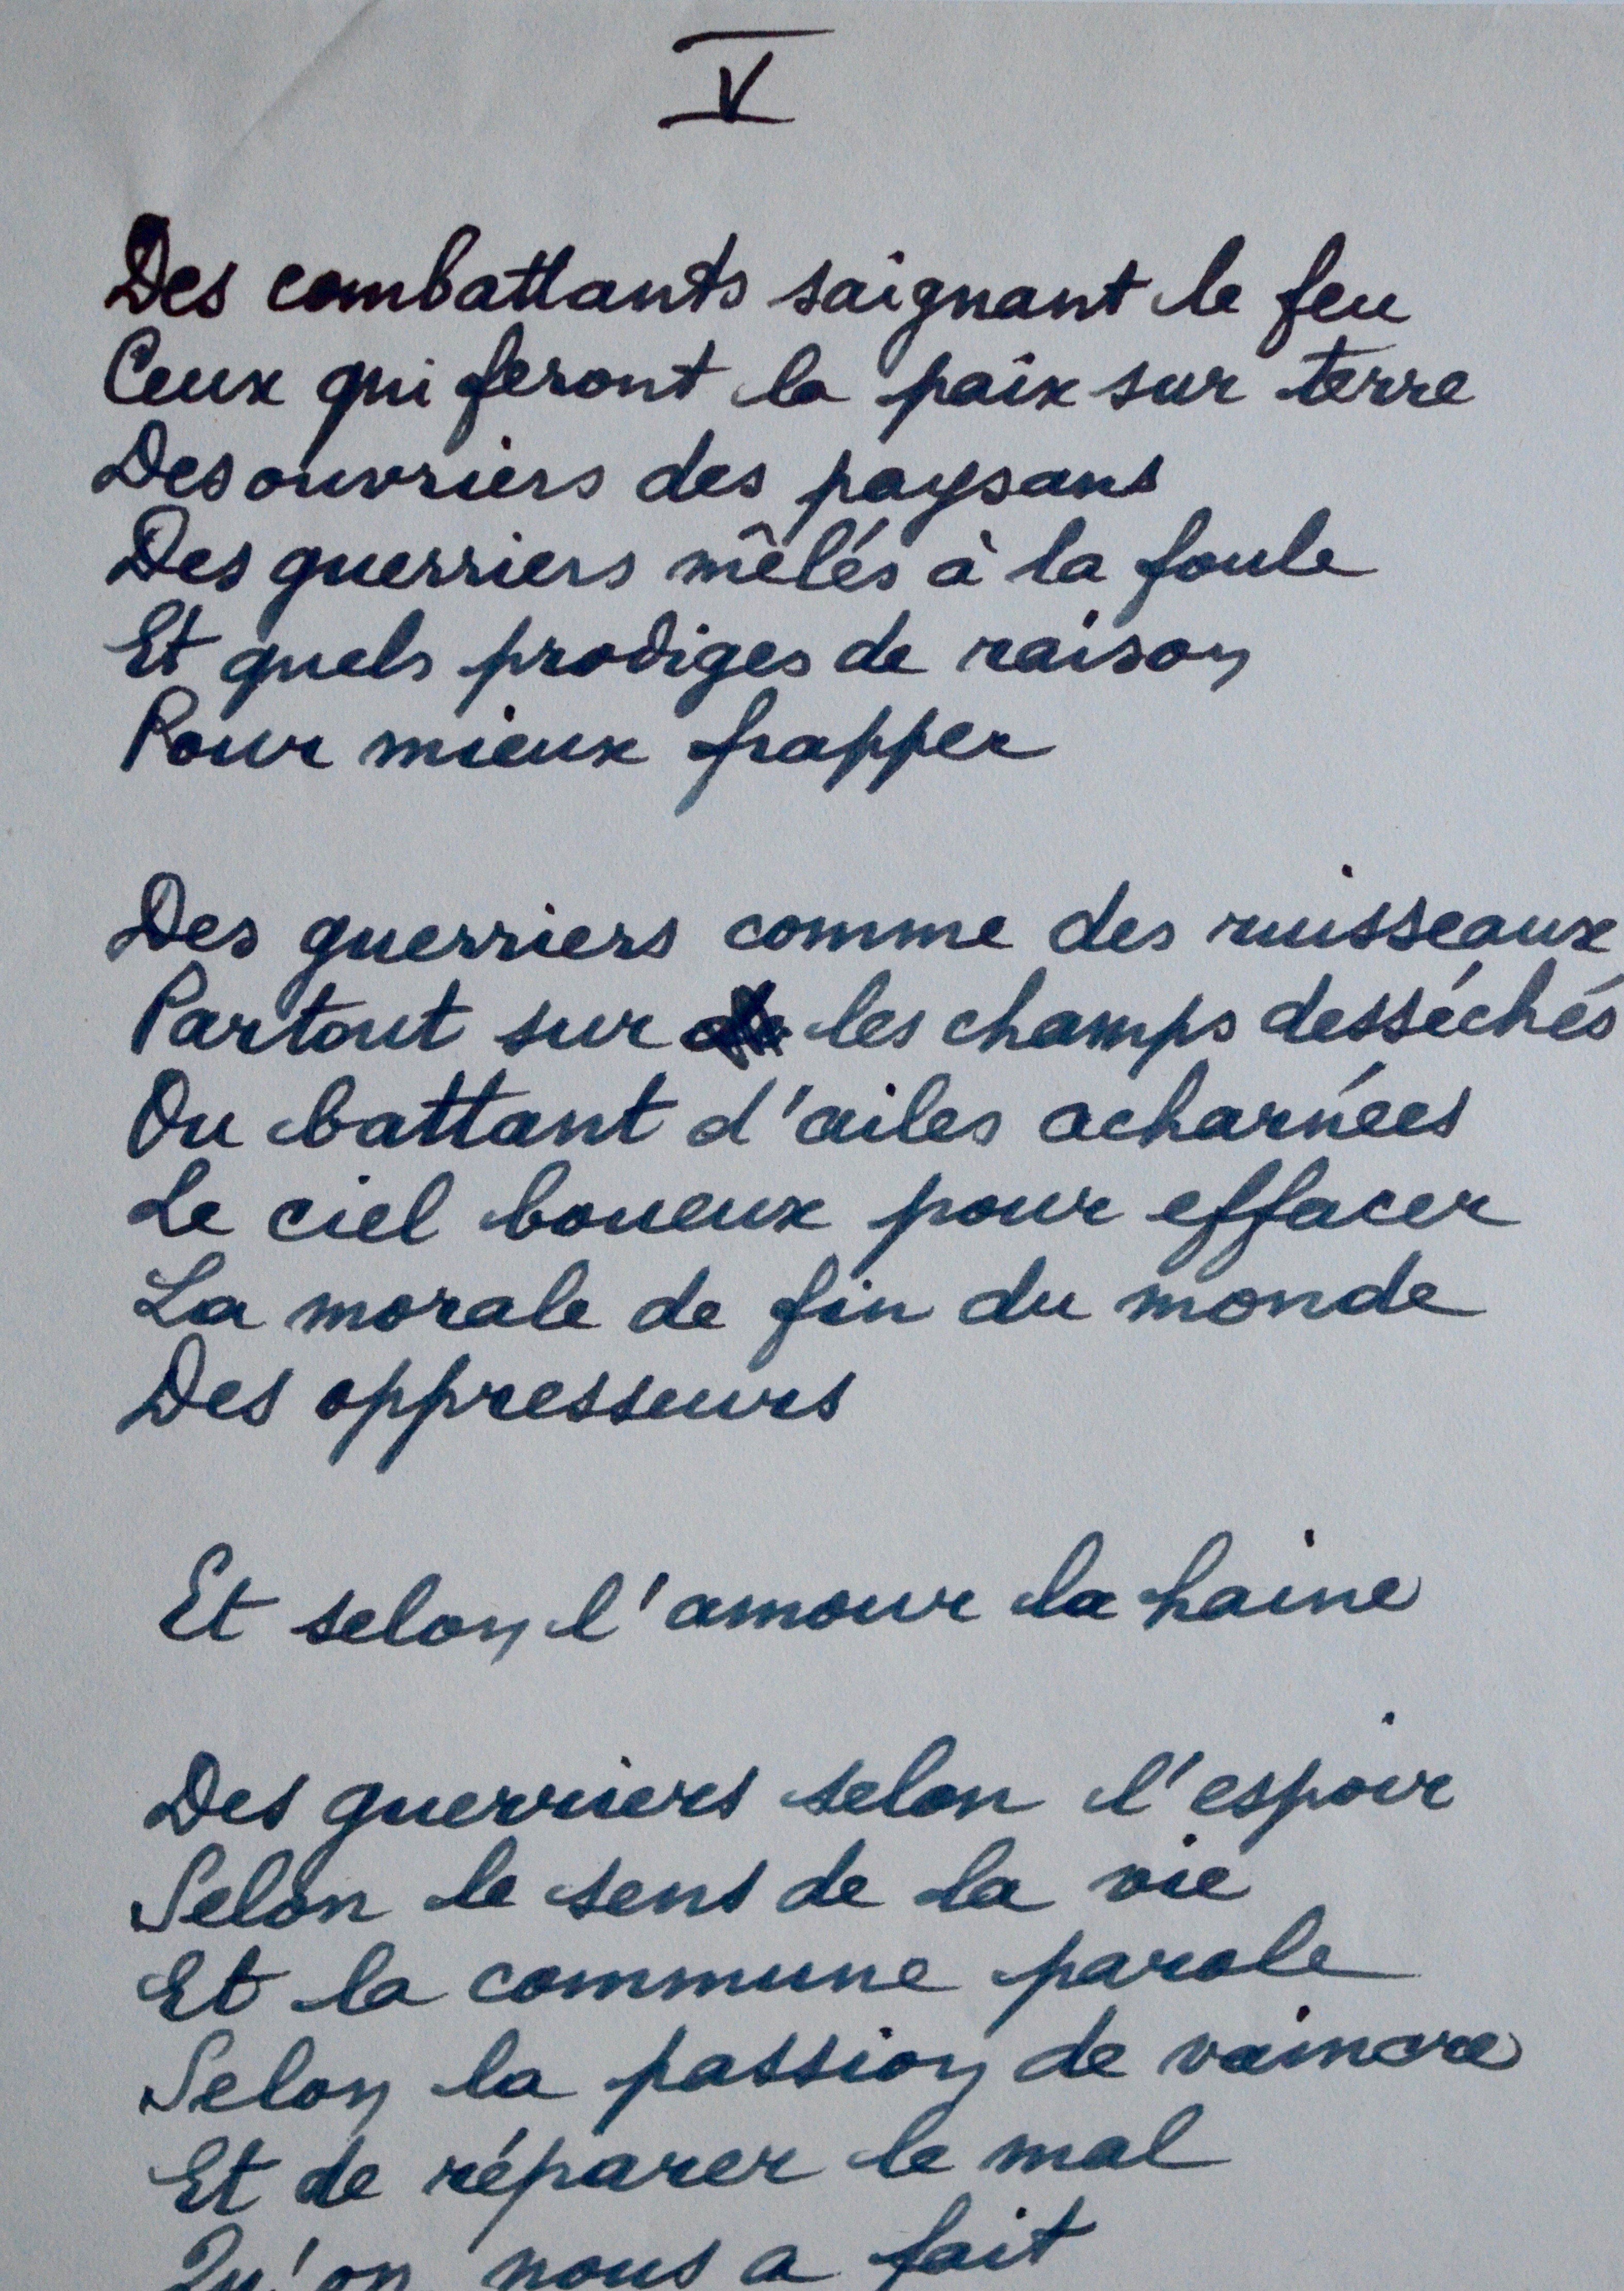 V
Des combattants saignant le feu
Ceux qui feront la paix sur terre
Des ouvriers des paysans
Des guerriers mêlés à la foule
Et quels prodiges de raison
Pour mieux frapper
Des guerriers comme des ruisseaux
Partout sur les champs desséchés
Ou battant d'ailes acharnées
Le ciel boueux pour effacer
La morale de fin du monde
Des oppresseurs
Et selon l'amour la haine
Des guerriers selon l'espoir
Selon le sens de la vie
Et la commune parole
Selon la passion de vaincre
Et de réparer le mal
Qu'on nous a fait